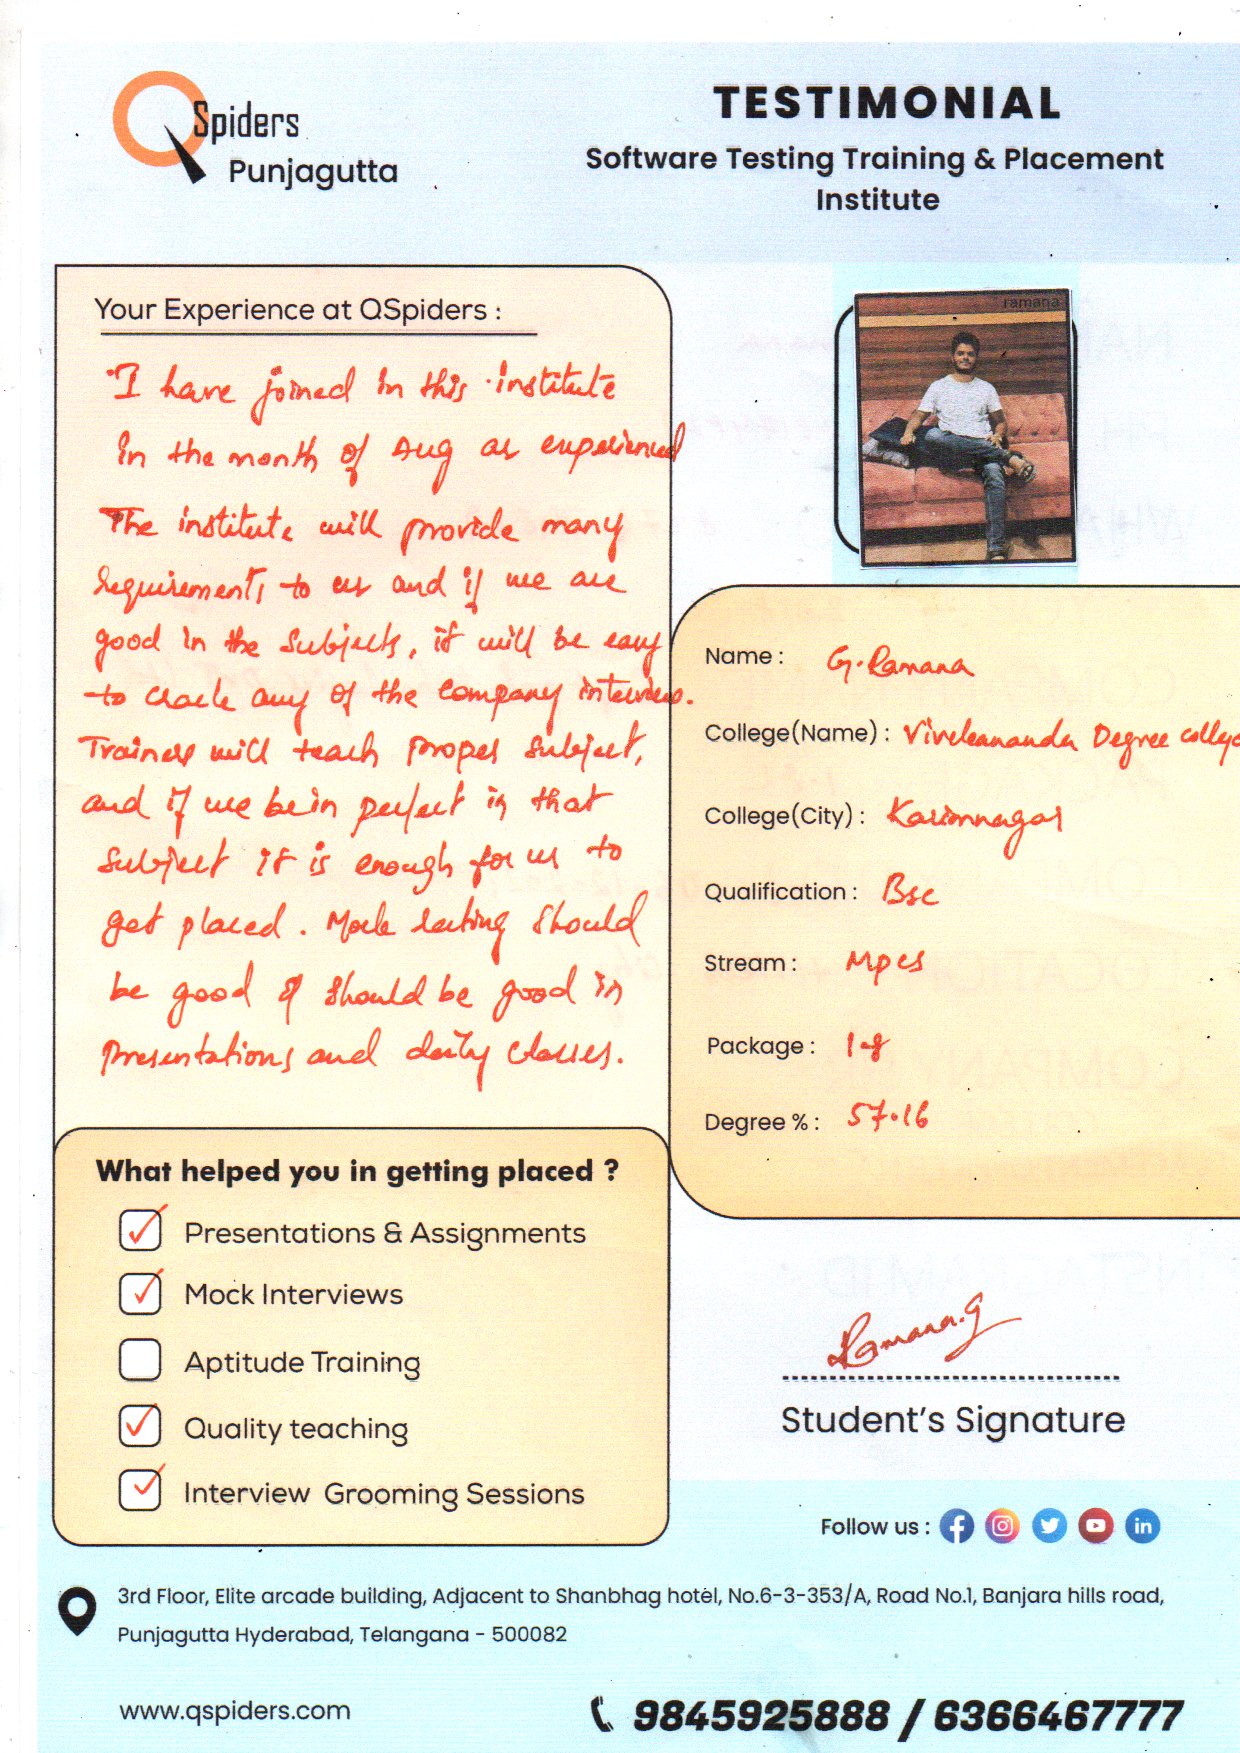 QSpiders
Punjagutta
TESTIMONIAL
Software Testing Training & Placement
Institute
Your Experience at QSpiders :
I have joined in this institute
in the month of Aug as experienced
The institute will provide many
requirements to us and if we are
good in the subjects, it will be easy
to crack any of the company interviews.
Trainers will teach proper subject,
and if we bein perfect in that
subject it is enough for us to
get placed. Mock should
be good & should be good in
presentations and daily classes.
ramana
Name : G. Ramana
College(Name) : Vivekananda Degree colleg
College(City) : Karimnagar
Qualification : Bsc
Stream : Mpcs
Package :
Degree % : 57.16
What helped you in getting placed ?
Presentations & Assignments
Mock Interviews
Aptitude Training
Quality teaching
Interview Grooming Sessions
Ramana.G
Student's Signature
Follow us :
3rd Floor, Elite arcade building, Adjacent to Shanbhag hotel, No.6-3-353/A, Road No.1, Banjara hills road,
Punjagutta Hyderabad, Telangana - 500082
www.qspiders.com
9845925888 / 6366467777